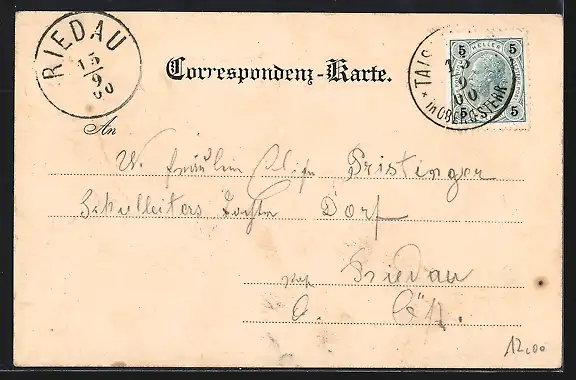 RIEDAU
15
9
00
Correspondenz-Karte.
TAIS
* in OBEROSTERR
5 HELLER 5
5 5
An
W. Fräulein Pristinger
Schulleiters Tochter Dorf
Riedau
O. Öst.
12,00